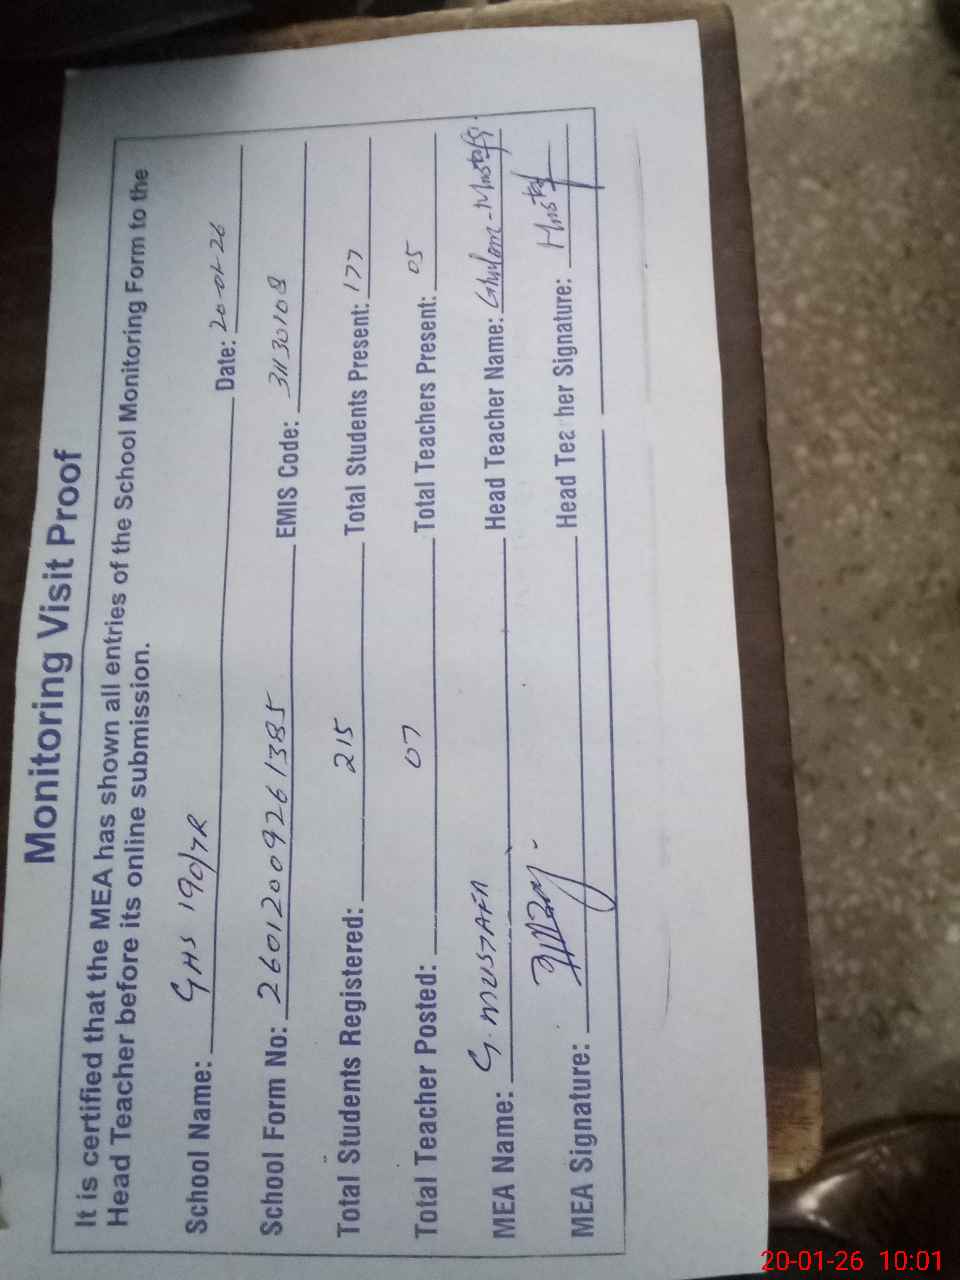 Monitoring Visit Proof
It is certified that the MEA has shown all entries of the School Monitoring Form to the
Head Teacher before its online submission.
School Name: GHS 190/7R Date: 20-01-26
School Form No: 26012009261385 EMIS Code: 31130108
Total Students Registered: 215 Total Students Present: 177
Total Teacher Posted: 07 Total Teachers Present: 05
MEA Name: G. MUSTAFA Head Teacher Name: Ghulam-Mustafa
MEA Signature: Head Tea her Signature:
20-01-26 10:01